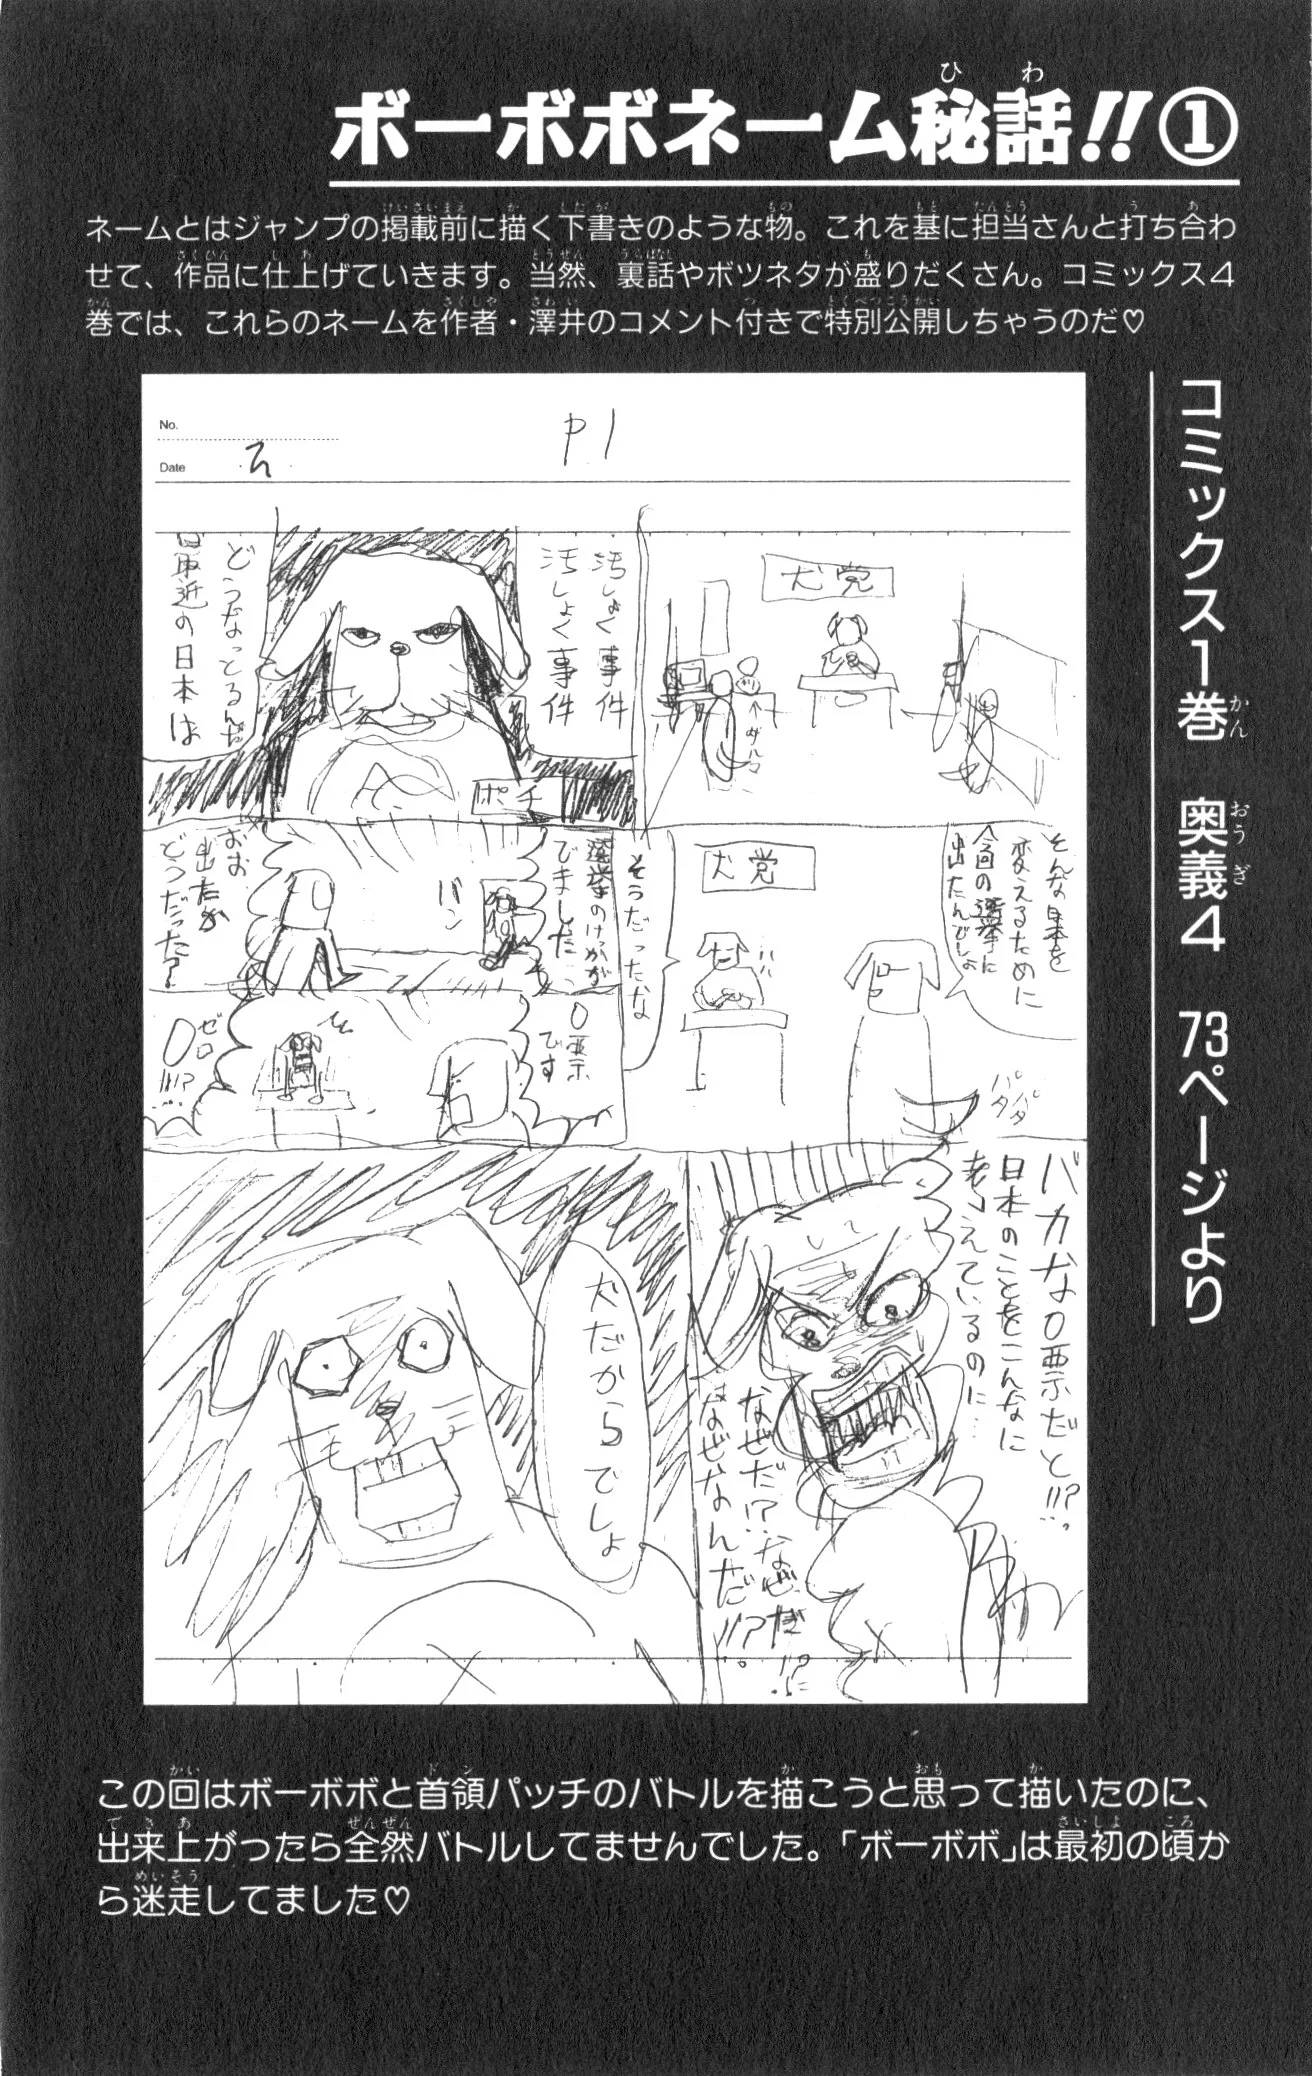 ボーボボネーム秘話!!①
ネームとはジャンプの掲載前に描く下書きのような物。これを基に担当さんと打ち合わ
せて、作品に仕上げていきます。当然、裏話やボツネタが盛りだくさん。コミックス4
巻では、これらのネームを作者・澤井のコメント付きで特別公開しちゃうのだ♡
コミックス1巻 奥義4 73ページより
No.
Date
P1
犬党
汚しょく事件
汚しょく事件
ポチ
どうなっとるんだ
最近の日本は
そんな日本を
変えるために
今回の選挙に
出たんでしょ
犬党
ハハ
パタパタ
そうだったな
選挙のけっかが
でました
バン
おお
出たか
どうだった?
0票
です
ゼロ
0!!!?
バカな0票だと!!?
日本のことをこんなに
考えているのに…
なぜだ!?なぜだ!!?
なぜなんだ!!?
犬だからでしょ
この回はボーボボと首領パッチのバトルを描こうと思って描いたのに、
出来上がったら全然バトルしてませんでした。「ボーボボ」は最初の頃か
ら迷走してました♡